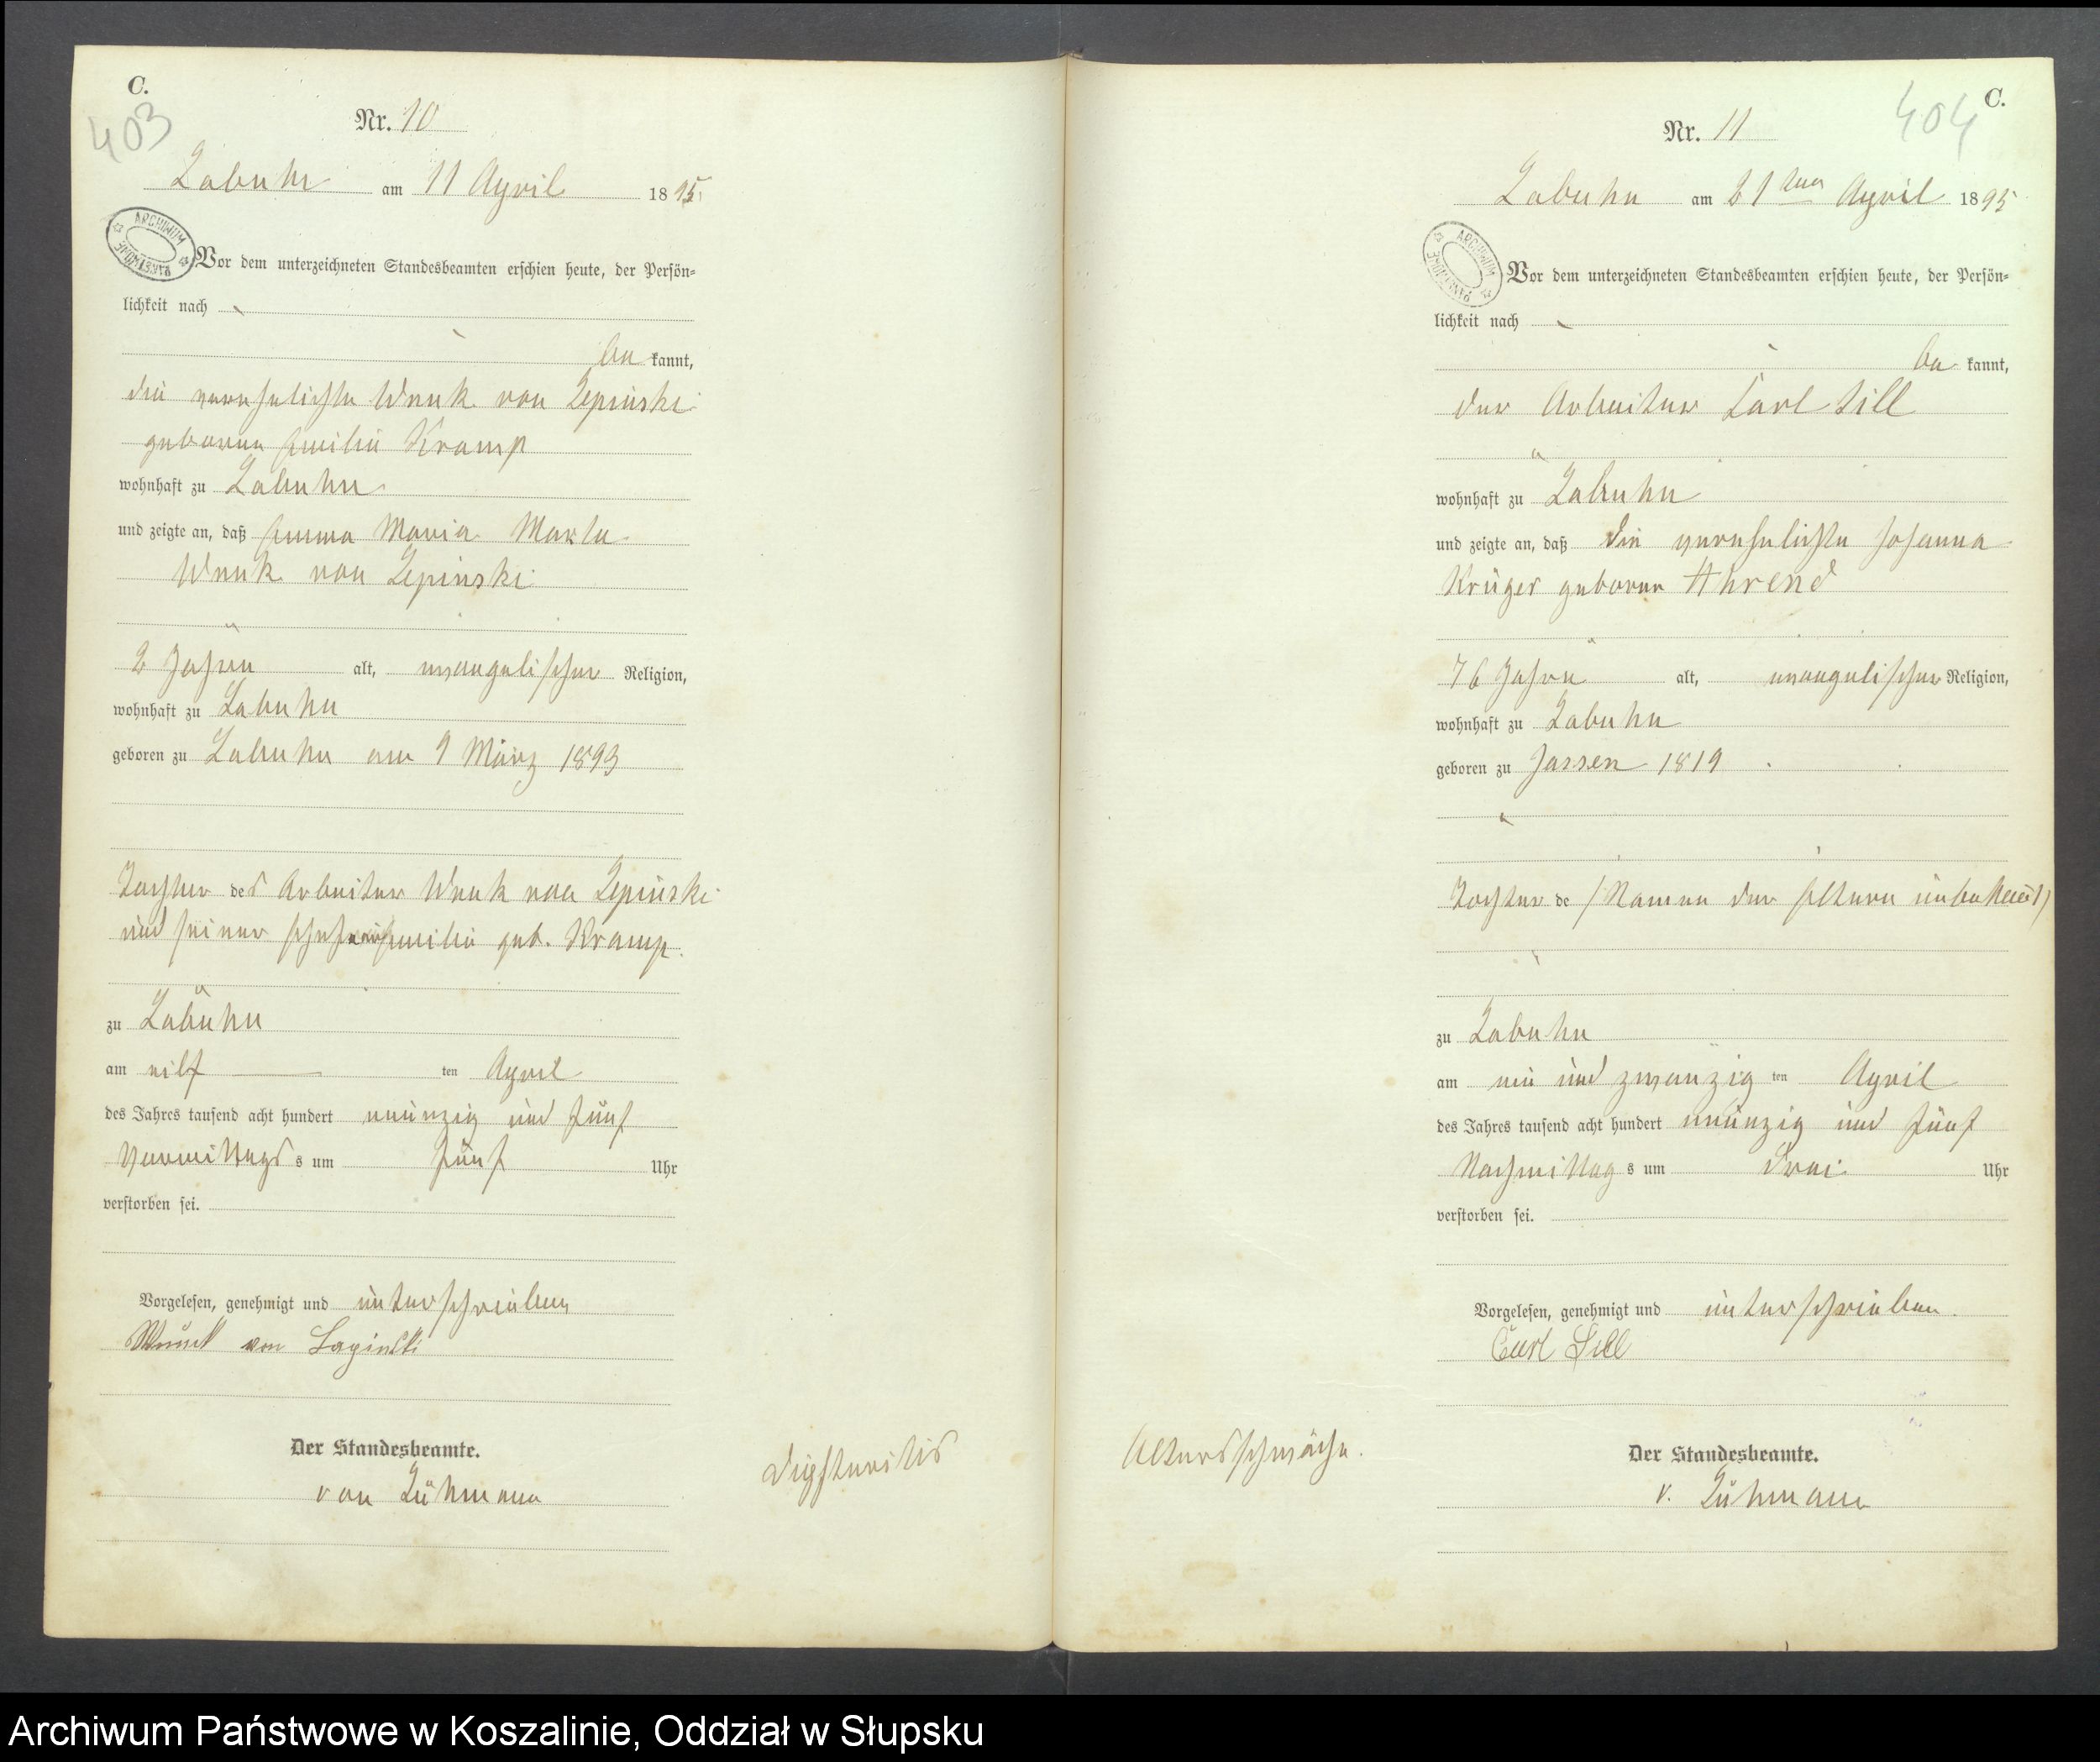 C.
403
Nr. 10
Labuhn am 11 April 1895
ARCHIWUM PAŃSTWOWE
Vor dem unterzeichneten Standesbeamten erschien heute, der Persön-
lichkeit nach
be kannt,
die verehelichte Wnuk von Lepinski
geborene Emilie Kramp
wohnhaft zu Labuhn
und zeigte an, daß Emma Maria Martha
Wnuk von Lepinski
2 Jahre alt, evangelischer Religion,
wohnhaft zu Labuhn
geboren zu Labuhn am 9 März 1893
Tochter des Arbeiter Wnuk von Lepinski
und seiner Ehefrau Emilie geb. Kramp.
zu Labuhn
am elf ten April
des Jahres tausend acht hundert neunzig und fünf
Vormittags s um fünf Uhr
verstorben sei.
Vorgelesen, genehmigt und unterschrieben
von
Der Standesbeamte.
von Lühmann
Diphteritis
C.
404
Nr. 11
Labuhn am 21 ten April 1895
ARCHIWUM PAŃSTWOWE
Vor dem unterzeichneten Standesbeamten erschien heute, der Persön-
lichkeit nach
be kannt,
der Arbeiter Carl Sill
wohnhaft zu Labuhn
und zeigte an, daß die verehelichte Johanna
Krüger geborene Ahrend
76 Jahre alt, evangelischer Religion,
wohnhaft zu Labuhn
geboren zu Jassen 1819
Tochter de (Namen der Eltern unbekannt)
zu Labuhn
am ein und zwanzig ten April
des Jahres tausend acht hundert neunzig und fünf
Nachmittag s um drei Uhr
verstorben sei.
Vorgelesen, genehmigt und unterschrieben.
Carl Sill
Altersschwäche.
Der Standesbeamte.
v. Lühmann
Archiwum Państwowe w Koszalinie, Oddział w Słupsku